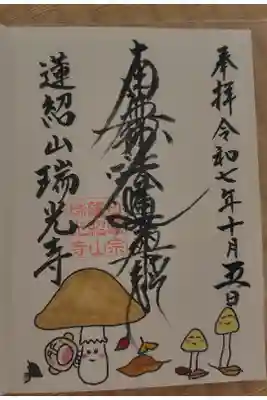 奉拝令和七年十月五日
南無妙法蓮華経
蓮紹山瑞光寺